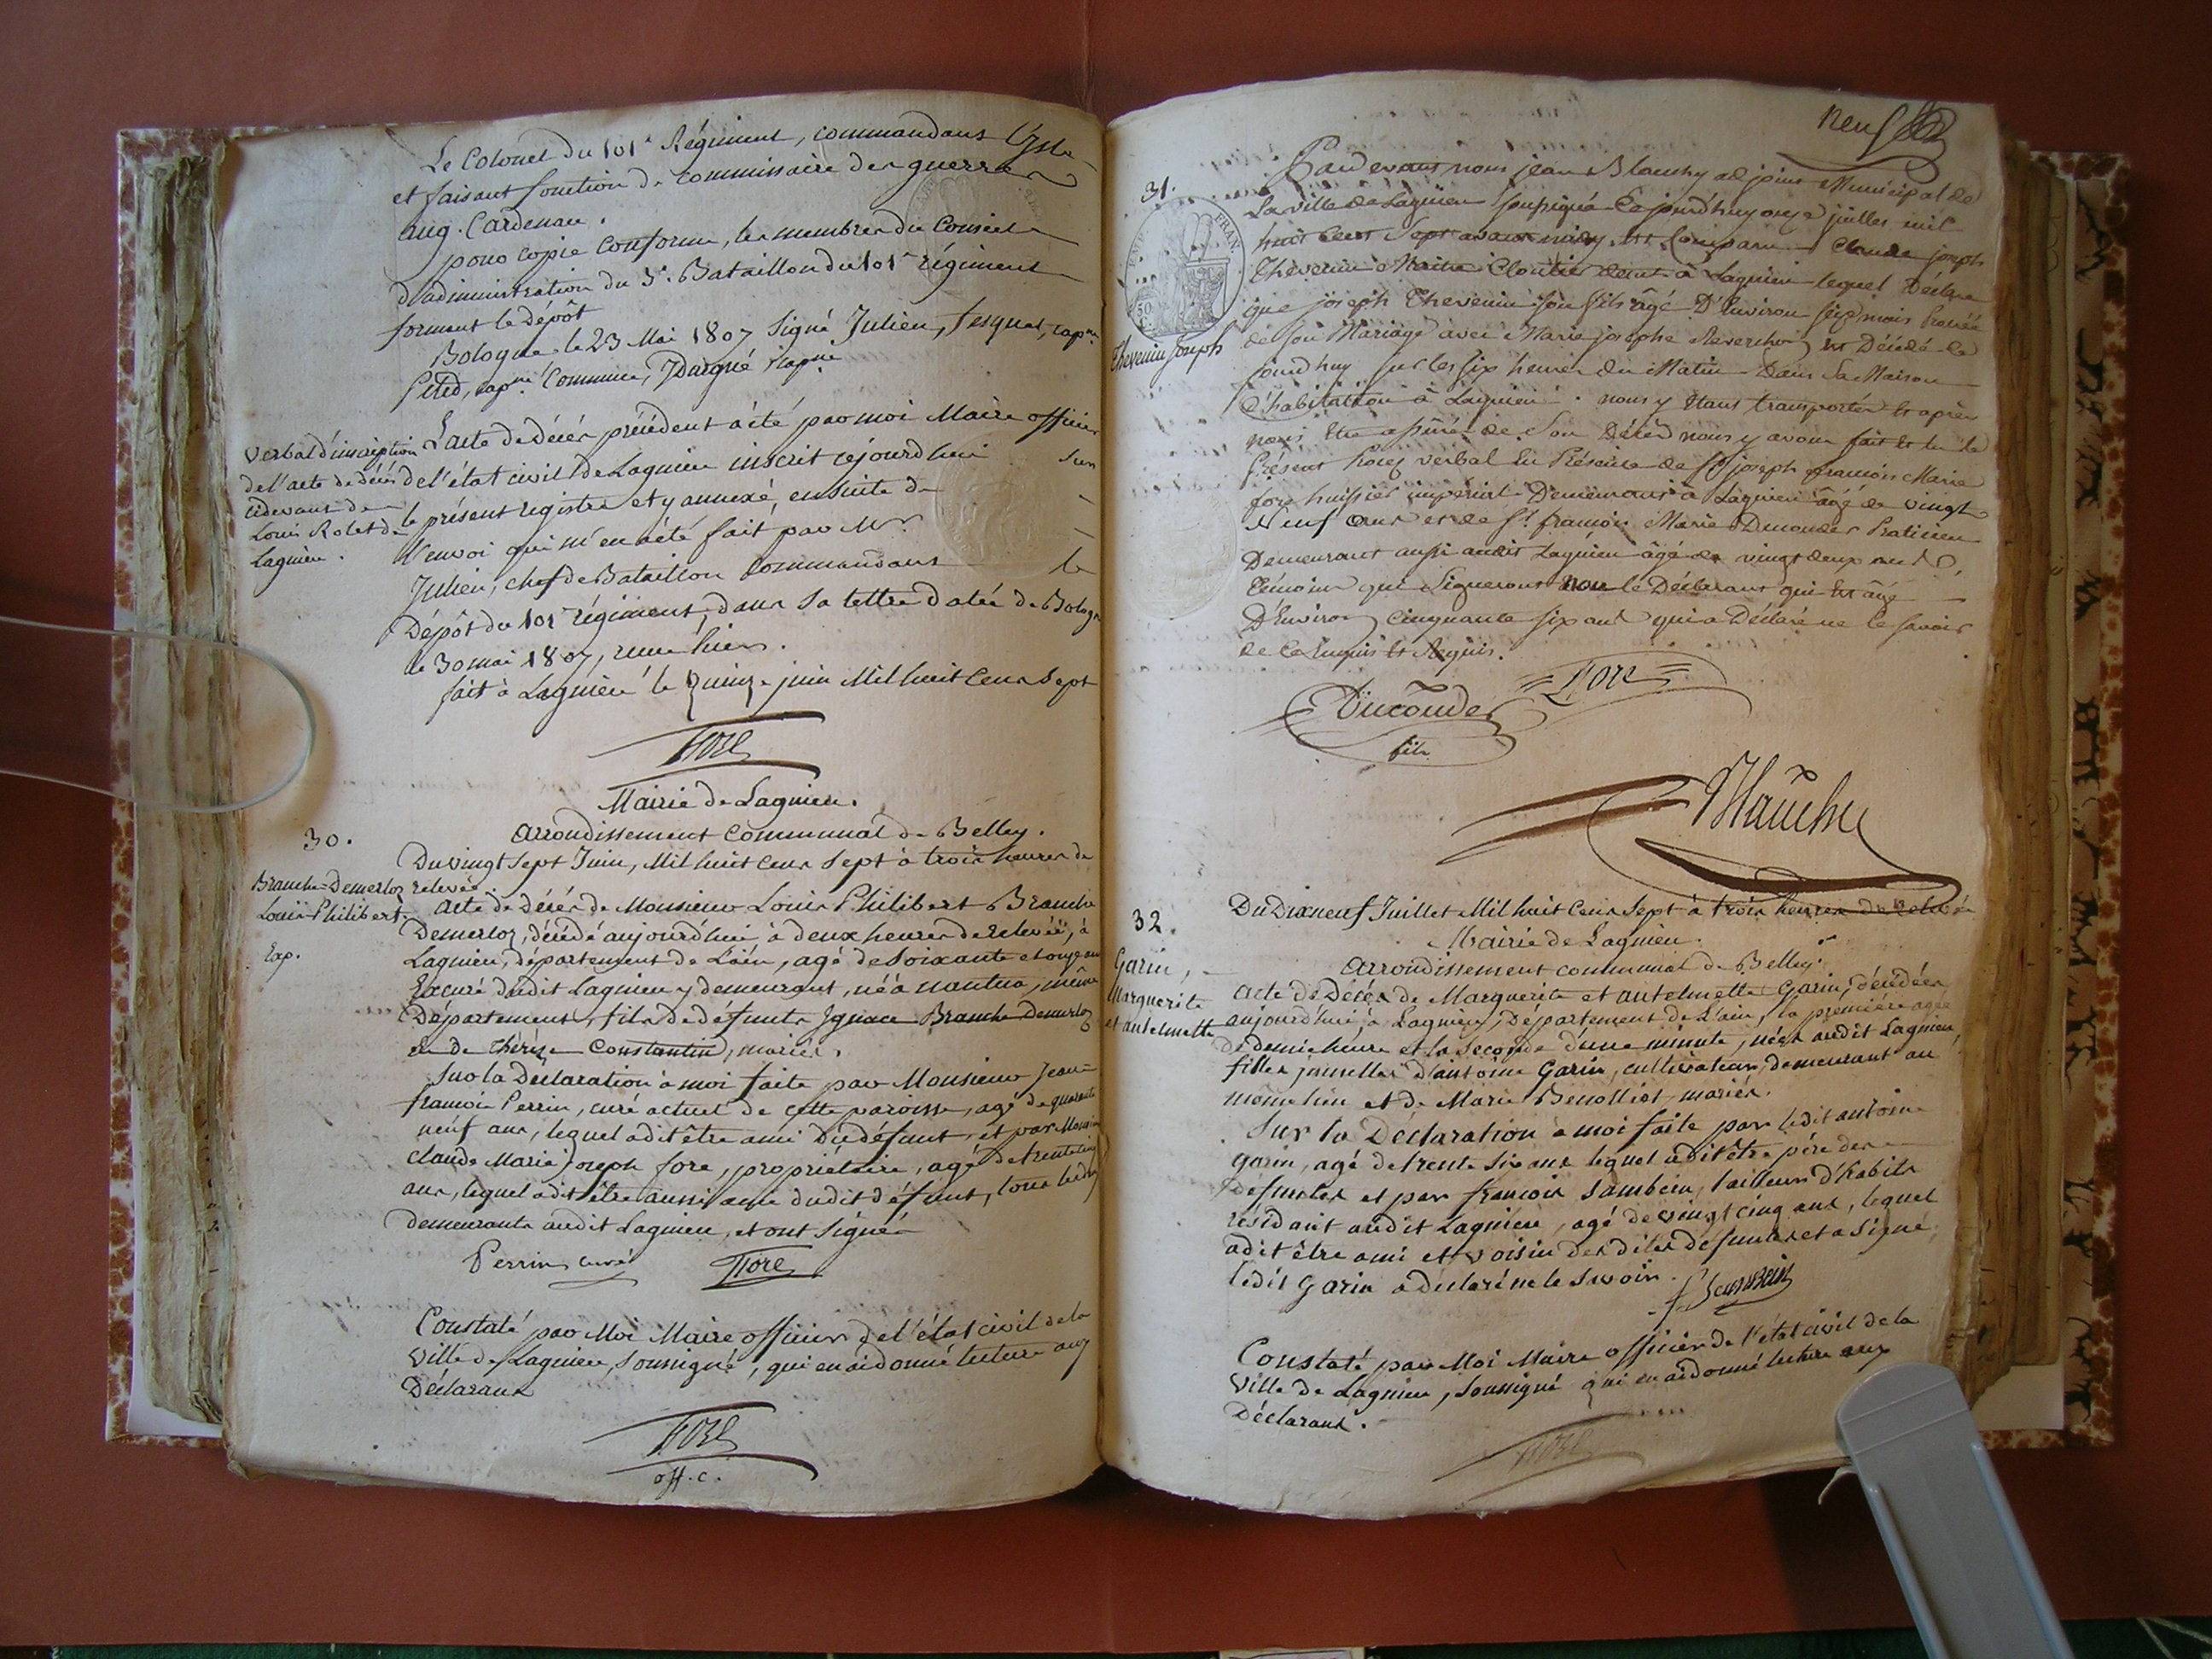 Le Colonel du 101e Régiment, commandant
et faisant fonction de Commissaire des guerres
aug. Cardenau.
pour copie conforme, les membres du Conseil
d'administration du 3e. Bataillon du 101e régiment
formant le dépôt
Bologne le 23 Mai 1807 Signé Julien, capne
capne Commune, capne
verbal d'inscription
de l'acte de décès
cidevant de
Louis Rolet de
Lagnieu.
L'acte de décès précédent a été par moi Maire officier
de l'état civil de Lagnieu inscrit cejourd'hui sur
le présent registre et y annexé, ensuite de
l'envoi qui m'en a été fait par Mr.
Julien, chef de Bataillon Commandant le
Dépôt du 101e régiment, dans sa lettre datée de Bologne
le 30 mai 1807, reçue hier.
fait à Lagnieu le quinze juin Mil huit Cent Sept
Fore
Mairie de Lagnieu.
Arrondissement Communal de Belley.
30.
Branche-Demerloz
Louis-Philibert.
Exp.
Du vingt Sept Juin, Mil huit Cent Sept à trois heures de
relevée.
Acte de décès de Monsieur Louis Philibert Branche
Demerloz, décédé aujourd'hui à deux heures de relevée, à
Lagnieu, département de L'ain, agé de Soixante et onze ans
Excuré dudit Lagnieu y demeurant, né à nantua, même
Département, fils de défunts Ignace Branche Demerloz
et de Thérèze Constantin, mariés.
Sur la Déclaration à moi faite par Monsieur Jean=
francois Perrin, curé actuel de cette paroisse, agé de quarante
neuf ans, lequel a dit être ami Du défunt, et par Monsieur
Claude Marie Joseph fore, propriétaire, agé de trente cinq
ans, lequel a dit être aussi ami dudit défunt, tous deux
demeurants audit Lagnieu, et ont Signé
Perrin curé Fore
Constaté par Moi Maire officier de l'état civil de la
Ville de Lagnieu, Soussigné, qui en ai donné lecture aux
Déclarans
Fore
off. c.
neuf
31.
Thevenin Joseph
Pardevant nous jean Blanchy adjoint Municipal de
La ville de Lagnieu soussigné Ce jourd'huy onze juillet mil
huit Cent Sept avant midy, est Comparu Claude joseph
Thevenin Maitre Cloutier demt à Lagnieu lequel Déclare
que joseph Thevenin son fils âgé D'Environ six mois Procréé
de son Mariage avec Marie josephe Reverchon est Décédé le
jourdhuy sur les six heures du Matin Dans Sa Maison
d'habitation à Lagnieu. nous y étant transporté et après
nous être assuré de Son Décès nous y avons fait et lu le
présent Procez verbal En Présence de Sr joseph françois Marie
fore huissier impérial Demeurant à Lagnieu âgé de vingt
Neuf ans et de Sr. françois Marie Ducondes Praticien
Demeurant aussi audit Lagnieu âgé de vingt deux ans
témoins qui Signeront non le Déclarant qui est âgé
D'Environ Cinquante six ans qui a Déclaré ne le savoir
de Ce Enquis et Requis.
Ducondes Fore
fils
Blanchy
32.
Garin,
Marguerite
et antelmette
Du Dixneuf Juillet Mil huit Cent Sept à trois heures de relevée
Mairie de Lagnieu.
Arrondissement communal de Belley.
Acte de Décès de Marguerite et antelmette Garin, décédées
aujourd'hui à Lagnieu, Département de L'ain, la première agée
de demie heure et la Seconde d'une minute, nées audit Lagnieu,
filles jumelles d'antoine Garin, cultivateur, demeurant au
même lieu et de Marie Benolliot, mariés.
Sur la Déclaration à moi faite par ledit antoine
Garin, agé de trente Six ans lequel a dit être père des
défuntes et par francois Sambein, tailleur d'habits
résidant audit Lagnieu, agé de vingt cinq ans, lequel
a dit être ami et voisin des dites défuntes et a signé,
ledit Garin a déclaré ne le Savoir. f Sambein
Constaté par Moi Maire officier de l'état civil de la
Ville de Lagnieu, Soussigné qui en ai donné lecture aux
Déclarans.
Fore